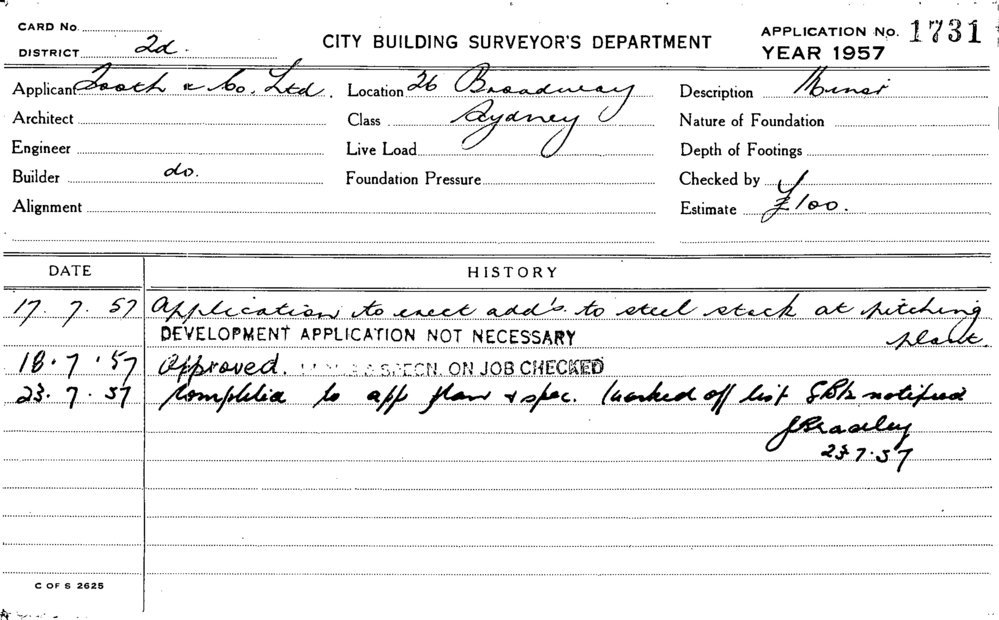 CARD No.
DISTRICT 2d.
CITY BUILDING SURVEYOR'S DEPARTMENT
APPLICATION No. 1731
YEAR 1957
Applicant Tooth & Co. Ltd. Location 26 Broadway Description Minor
Architect Class Sydney Nature of Foundation
Engineer Live Load Depth of Footings
Builder do. Foundation Pressure Checked by
Alignment Estimate £100.
DATE HISTORY
17. 7. 57 Application to erect add's. to steel stack at pitching
DEVELOPMENT APPLICATION NOT NECESSARY plant.
18. 7. 57 Approved. SPECN. ON JOB CHECKED
23. 7. 57 Completed to app plan & spec. Marked off list notified
J Bradley
23.7.57
C OF S 2625